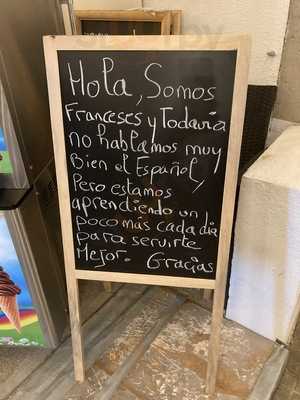 Hola, Somos
Franceses y Todavia
no hablamos muy
Bien el Español,
Pero estamos
aprendiendo un
poco más cada dia
para servirte
Mejor. Gracias